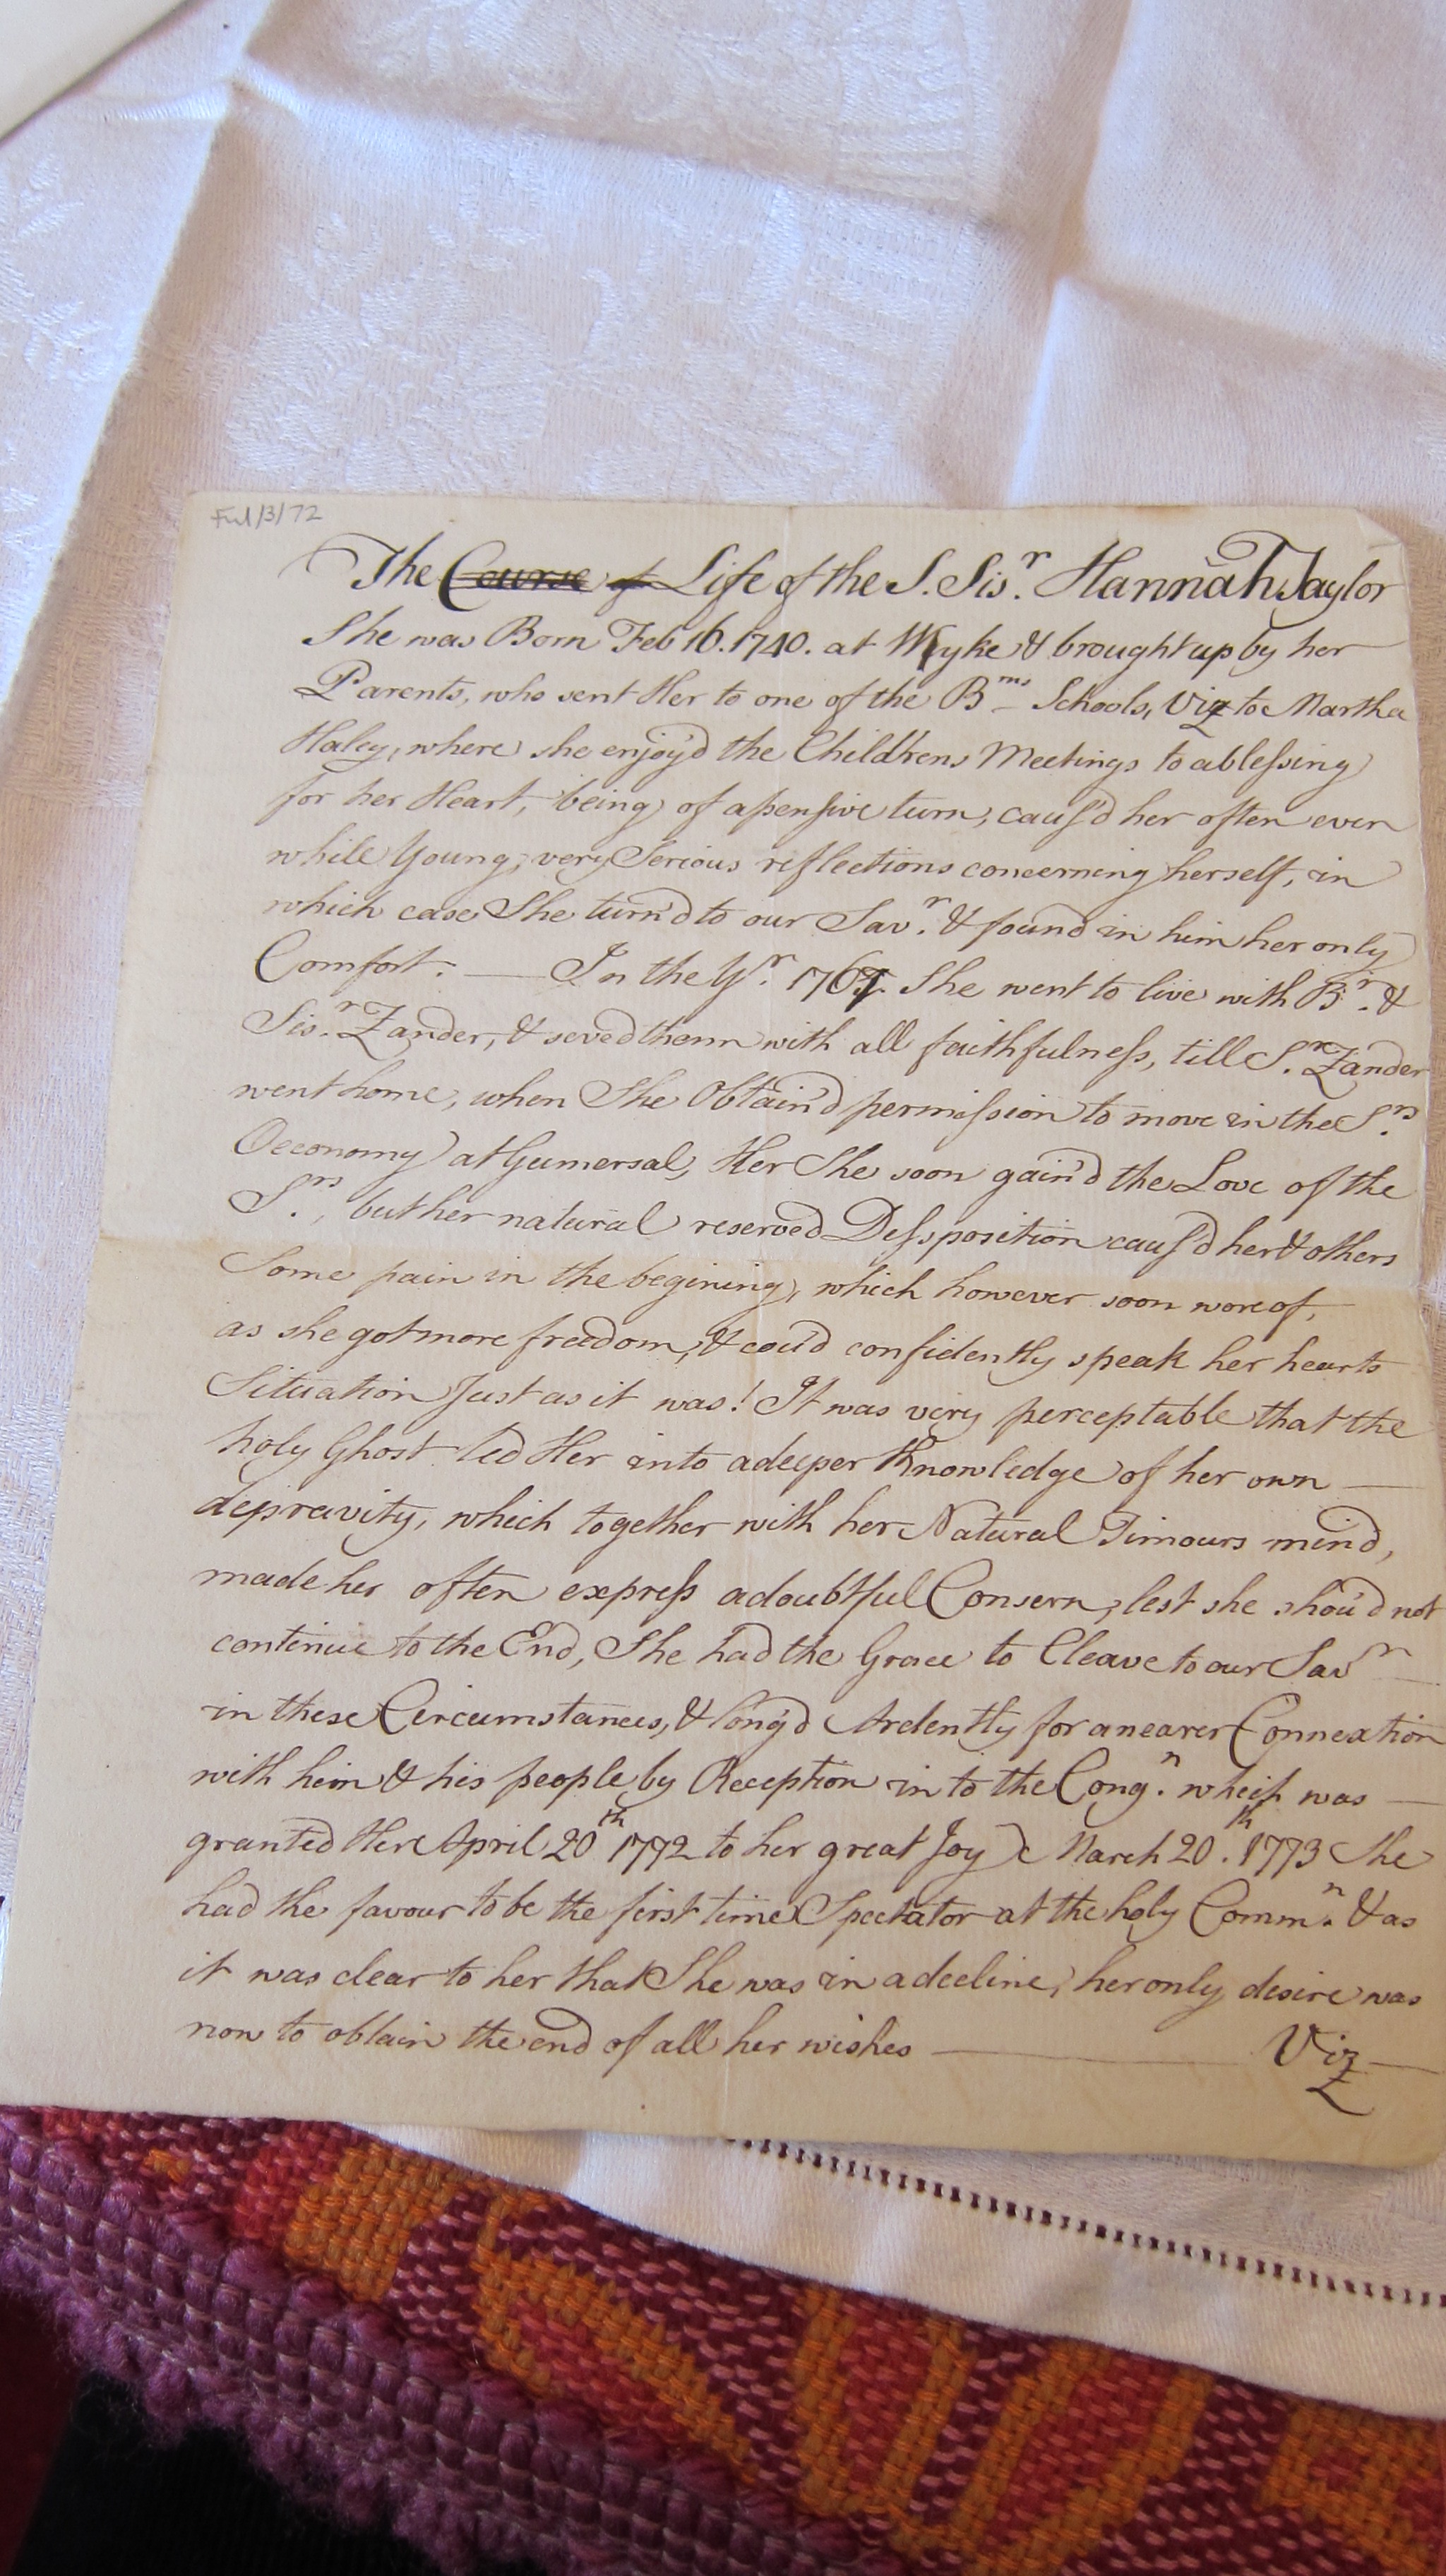 Ful/3/72
The Course of Life of the S. Sisr. Hannah Taylor
She was Born Feb 16. 1740. at Wyke & brought up by her
Parents, who sent Her to one of the Bms Schools, Viz to Martha
Haley, where she enjoy'd the Childrens Meetings to a blessing
for her Heart, being of a pensive turn, caus'd her often even
while Young, very Serious reflections concerning herself, in
which case She turn'd to our Savr. & found in him her only
Comfort. — In the Yr. 1767. She went to live with Br. &
Sisr. Zander, & seved them with all faithfulness, till Sr. Zander
went home, when She Obtain'd permission to move in the Srs.
Oeconomy at Gumersal, Her She soon gain'd the Love of the
Srs., but her natural reserved Dessposition caus'd her & others
Some pain in the begining, which however soon wore of,
as she got more freedom, & cou'd confidently speak her hearts
Situation Just as it was! It was very perceptable that the
holy Ghost led Her into a deeper Knowledge of her own —
depravity, which together with her Natural Timours mind,
made her often express a doubtful Consern, lest she shou'd not
continue to the End, She had the Grace to Cleave to our Savr
in these Circumstances, & long'd Ardently for a nearer Connextion
with him & his people by Reception in to the Congn. which was —
granted Her April 20th 1772 to her great Joy March 20th. 1773 She
had the favour to be the first time Spectator at the holy Commn. & as
it was clear to her that She was in a decline, her only desire was
now to obtain the end of all her wishes — Viz —